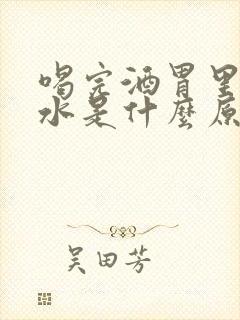 喝完酒胃里
水是什麼原
吴田芳